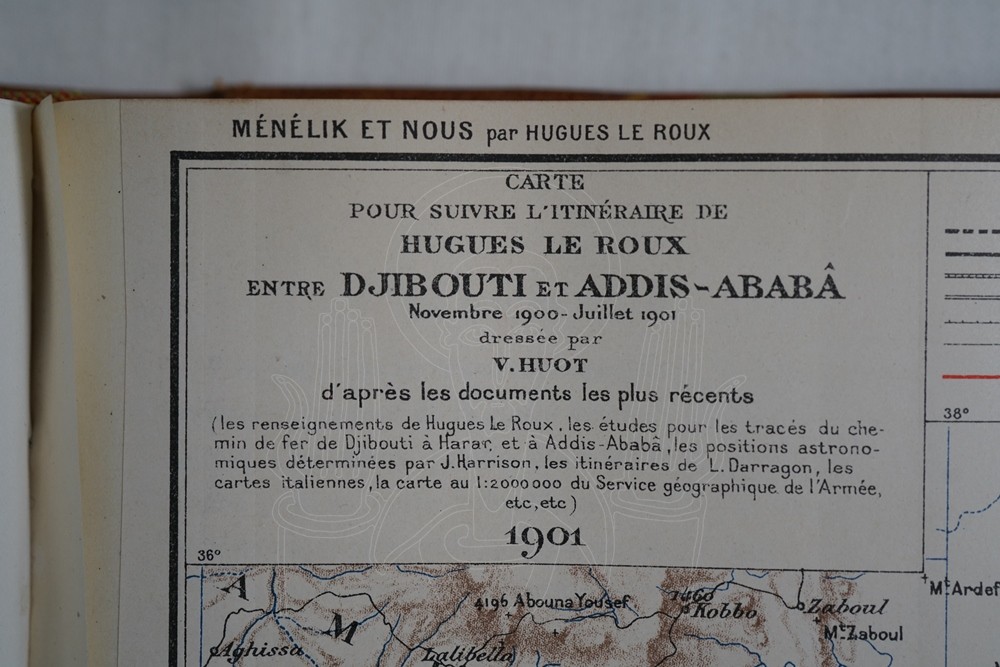 MÉNÉLIK ET NOUS par HUGUES LE ROUX
CARTE
POUR SUIVRE L'ITINÉRAIRE DE
HUGUES LE ROUX
ENTRE DJIBOUTI ET ADDIS-ABABÂ
Novembre 1900-Juillet 1901
dressée par
V. HUOT
d'après les documents les plus récents
(les renseignements de Hugues Le Roux, les études pour les tracés du che-
min de fer de Djibouti à Harar, et à Addis-Ababâ, les positions astrono-
miques déterminées par J. Harrison, les itinéraires de L. Darragon, les
cartes italiennes, la carte au 1:2000000 du Service géographique de l'Armée,
etc, etc)
1901
38°
36°
A
M
Mt Ardef
4196 Abouna Yousef
1460
Kobbo
Zaboul
Mt Zaboul
Aghissa
Lalibella